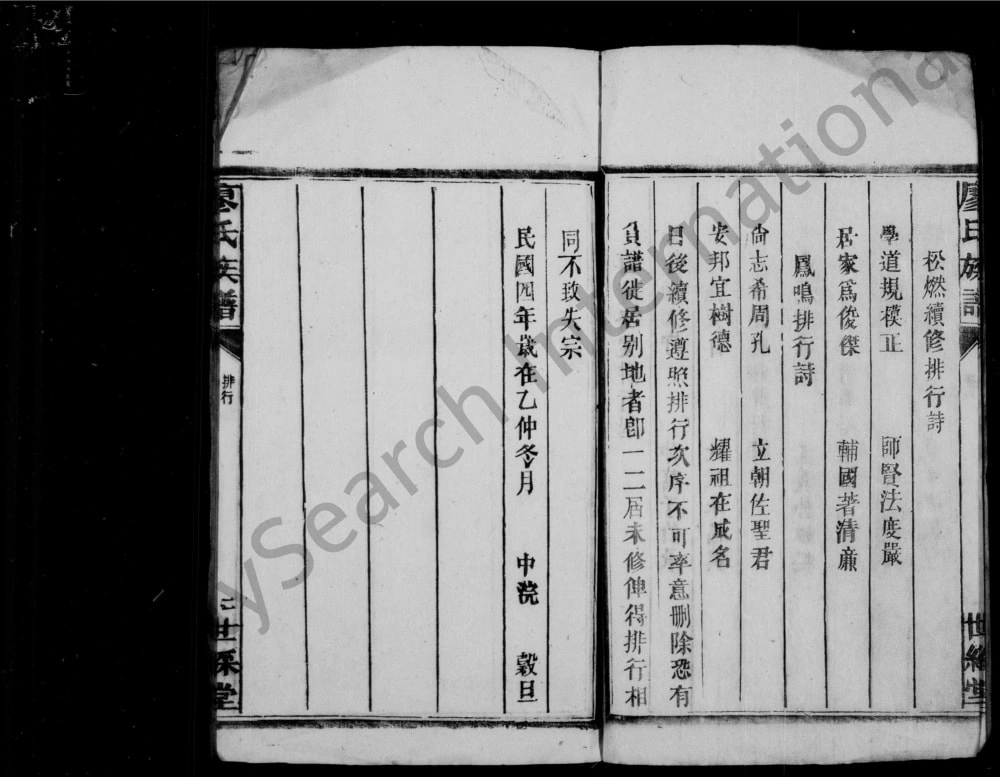 廖氏族譜
世綵堂
松燃續修排行詩
學道規模正 師賢法度嚴
居家為俊傑 輔國著清廉
鳳鳴排行詩
尚志希周孔 立朝佐聖君
安邦宜樹德 耀祖在成名
日後續修遵照排行次序不可率意刪除恐有
負譜徙居別地者卽一二居未修俾得排行相
同不致失宗
民國四年歲在乙仲冬月 中浣 穀旦
廖氏族譜
排行
世綵堂
ySearch International